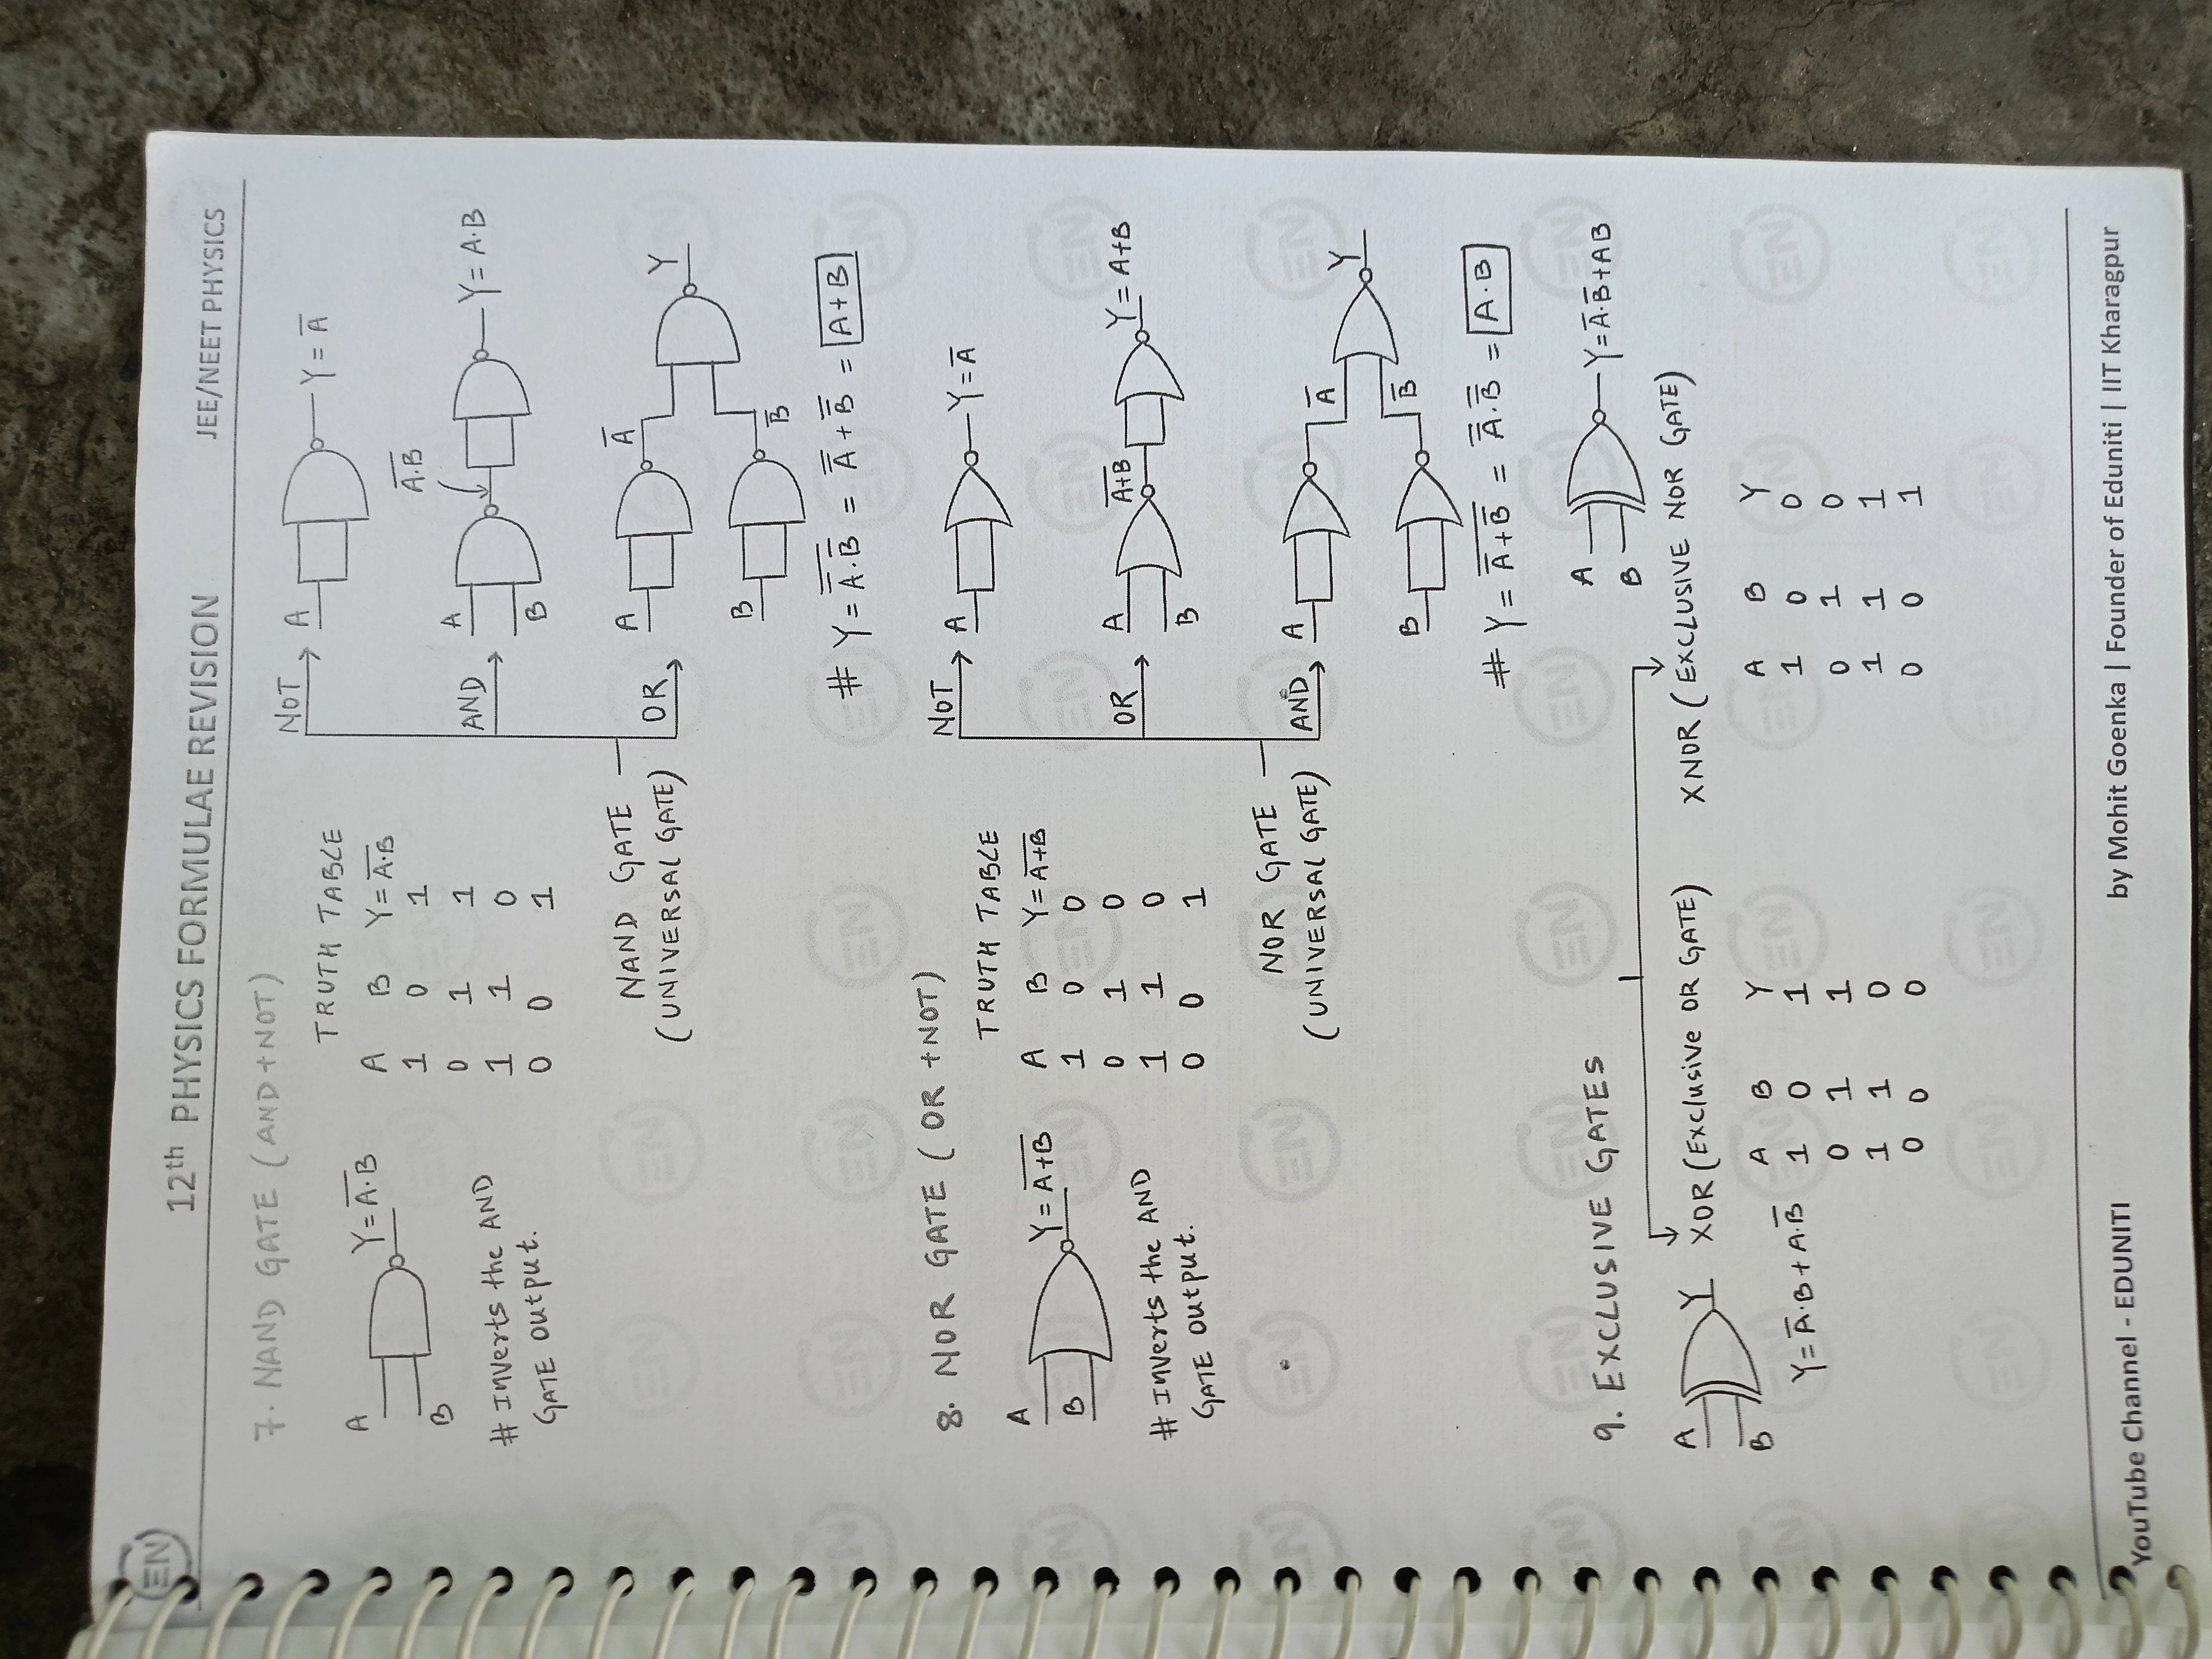 EN
12th PHYSICS FORMULAE REVISION
JEE/NEET PHYSICS
7. NAND GATE (AND+NOT)
A
B
Y = \overline{A·B}
# Inverts the AND
GATE output.
TRUTH TABLE
A B Y = \overline{A·B}
1 0 1
0 1 1
1 1 0
0 0 1
NAND GATE
(UNIVERSAL GATE)
NOT
A
Y = \overline{A}
AND
A
B
\overline{A·B}
Y = A·B
OR
A
\overline{A}
B
\overline{B}
Y
# Y = \overline{\overline{A}·\overline{B}} = \overline{\overline{A}} + \overline{\overline{B}} = A+B
8. NOR GATE (OR +NOT)
A
B
Y = \overline{A+B}
# Inverts the AND
GATE output.
TRUTH TABLE
A B Y = \overline{A+B}
1 0 0
0 1 0
1 1 0
0 0 1
NOR GATE
(UNIVERSAL GATE)
NOT
A
Y = \overline{A}
OR
A
B
\overline{A+B}
Y = A+B
AND
A
\overline{A}
B
\overline{B}
Y
# Y = \overline{\overline{A}+\overline{B}} = \overline{\overline{A}}·\overline{\overline{B}} = A·B
9. EXCLUSIVE GATES
XOR (Exclusive OR GATE)
A
B
Y
Y = \overline{A}·B + A·\overline{B}
A B Y
1 0 1
0 1 1
1 1 0
0 0 0
A
B
Y = \overline{A}·\overline{B} + AB
XNOR (EXCLUSIVE NOR GATE)
A B Y
1 0 0
0 1 0
1 1 1
0 0 1
YouTube Channel - EDUNITI
by Mohit Goenka | Founder of Eduniti | IIT Kharagpur